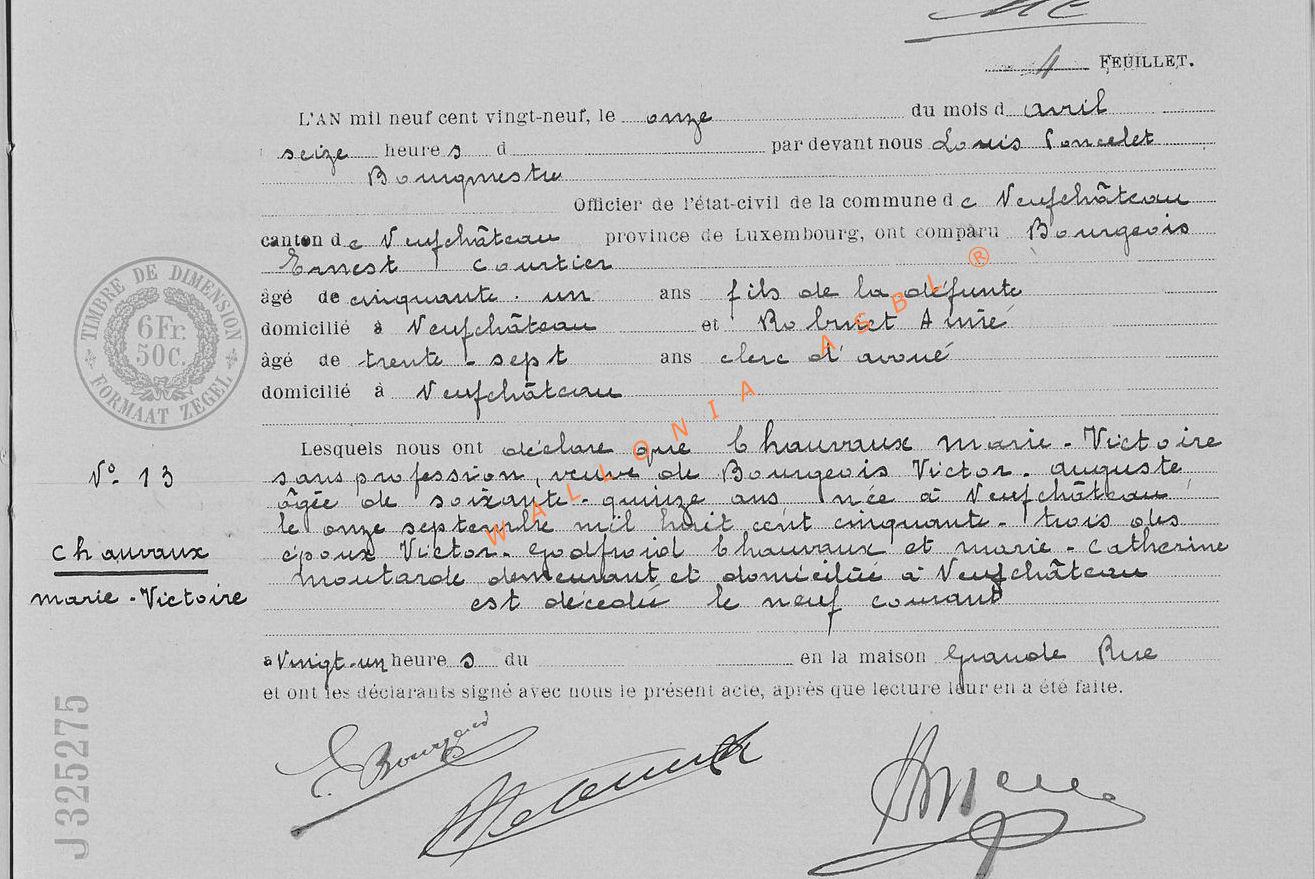 4 FEUILLET.
L'AN mil neuf cent vingt-neuf, le onze du mois d avril
seize heure s d par devant nous Louis Poncelet
Bourgmestre
Officier de l'état-civil de la commune de Neufchâteau
canton de Neufchâteau province de Luxembourg, ont comparu Bourgeois
Ernest courtier
âgé de cinquante-un ans fils de la défunte
domicilié à Neufchâteau et Robinet Aimé
âgé de trente-sept ans clerc d'avoué
domicilié à Neufchâteau
Lesquels nous ont déclaré que Chauvaux marie-Victoire
sans profession, veuve de Bourgeois Victor-auguste
âgée de soixante-quinze ans née à Neufchâteau
le onze septembre mil huit cent cinquante-trois des
époux Victor-Godfroid Chauvaux et marie-Catherine
moutarde demeurant et domiciliée à Neufchâteau
est décédée le neuf courant
à Vingt-un heure s du en la maison Grande Rue
et ont les déclarants signé avec nous le présent acte, après que lecture leur en a été faite.
N° 13
Chauvaux
marie-Victoire
TIMBRE DE DIMENSION
6 Fr.
50 C.
FORMAAT ZEGEL
J 325275
E. Bourgeois
WALLONIA ASBL ®